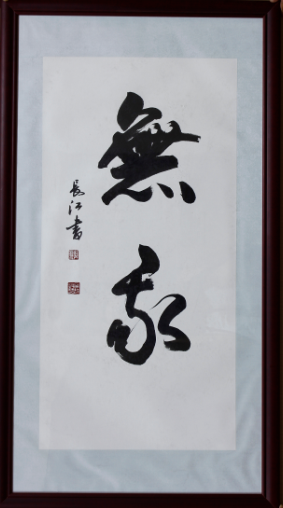 無我
長江書